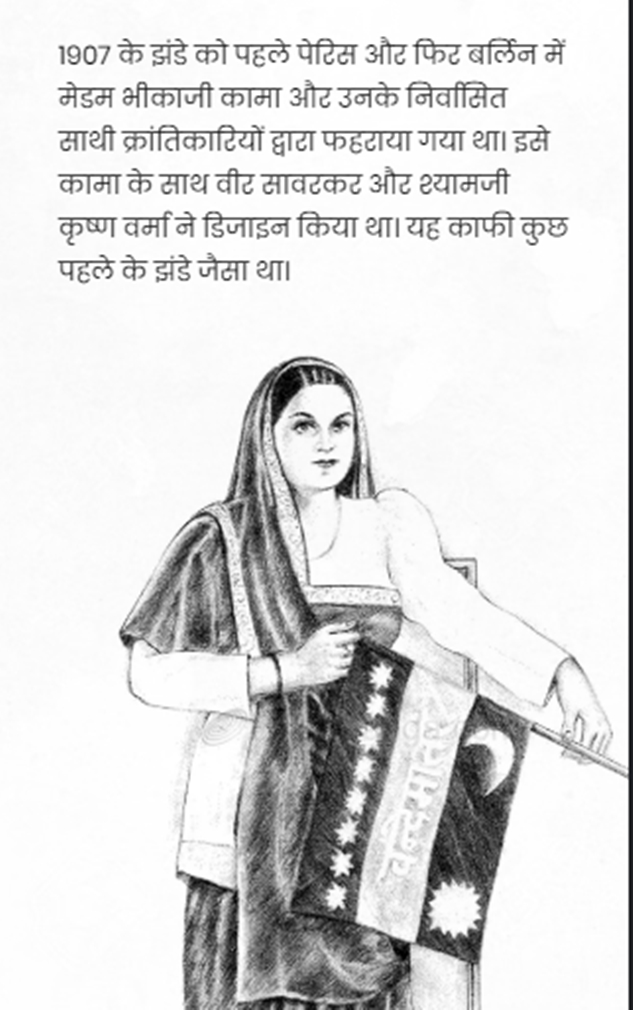 1907 के झंडे को पहले पेरिस और फिर बर्लिन में
मेडम भीकाजी कामा और उनके निर्वासित
साथी क्रांतिकारियों द्वारा फहराया गया था। इसे
कामा के साथ वीर सावरकर और श्यामजी
कृष्ण वर्मा ने डिजाइन किया था। यह काफी कुछ
पहले के झंडे जैसा था।
वन्दे मातरं